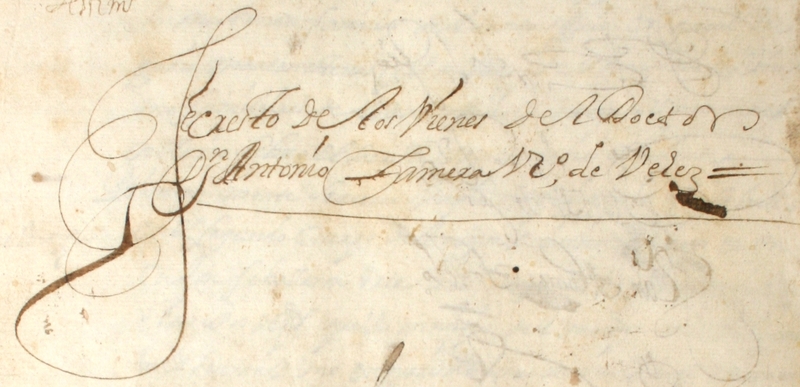 Secresto de los Vienes del Doctor
Dn Antonio Zamora Vzo. de Velez